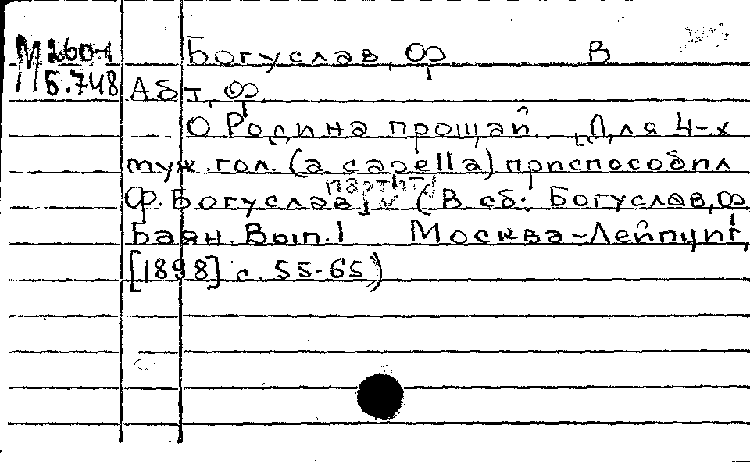 М 260-1 Богуслав, Ф. В
Б.748 Абт, Ф.
О Родина прощай. [Для 4-х
муж. гол. (a capella) приспособил
партит.
Ф. Богуслав] v (В сб: Богуслав, Ф.
Баян. Вып. 1 Москва-Лейпциг,
[1898] с. 55-65)